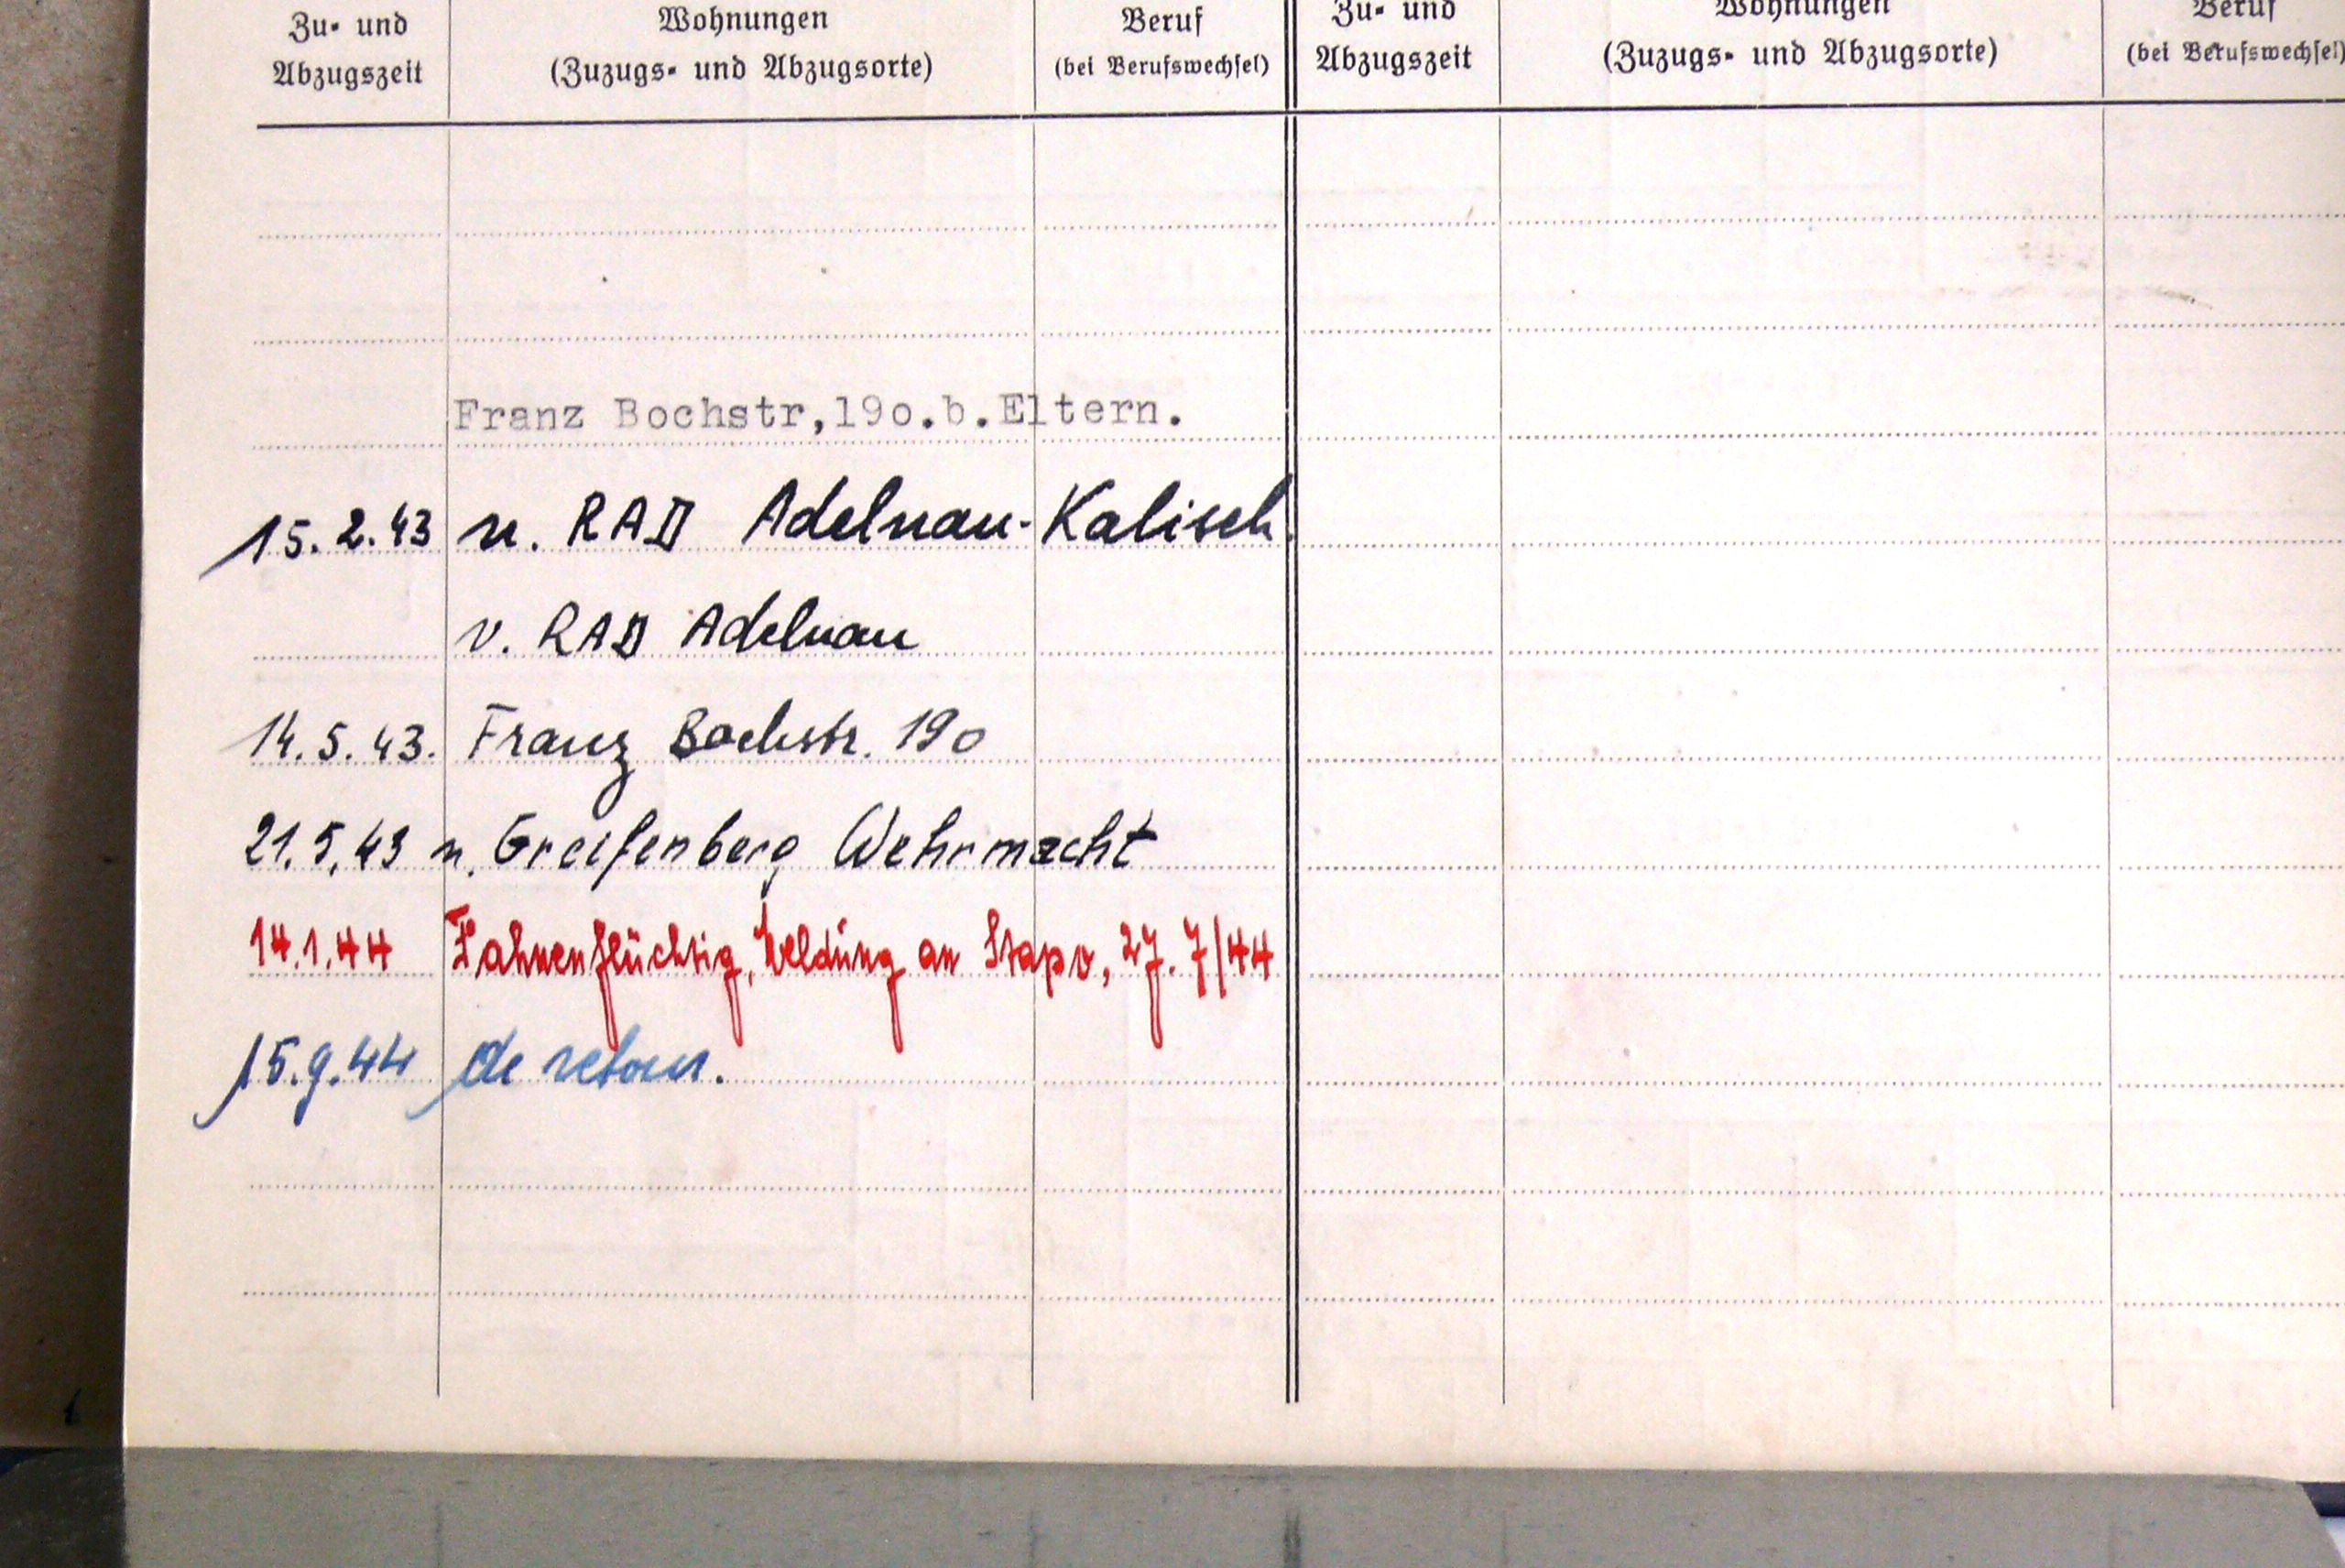 Zu- und Abzugszeit
Wohnungen (Zuzugs- und Abzugsorte)
Beruf (bei Berufswechsel)
Zu- und Abzugszeit
Wohnungen (Zuzugs- und Abzugsorte)
Beruf (bei Berufswechsel)
Franz Bochstr,190.b.Eltern.
15.2.43 n. RAD Adelnau-Kalisch.
v. RAD Adelnau
14.5.43. Franz Bochstr. 190
21.5.43 n. Greifenberg Wehrmacht
14.1.44 Fahnenflüchtig, Meldung an Stapo, 27.7/44
15.9.44 de retour.